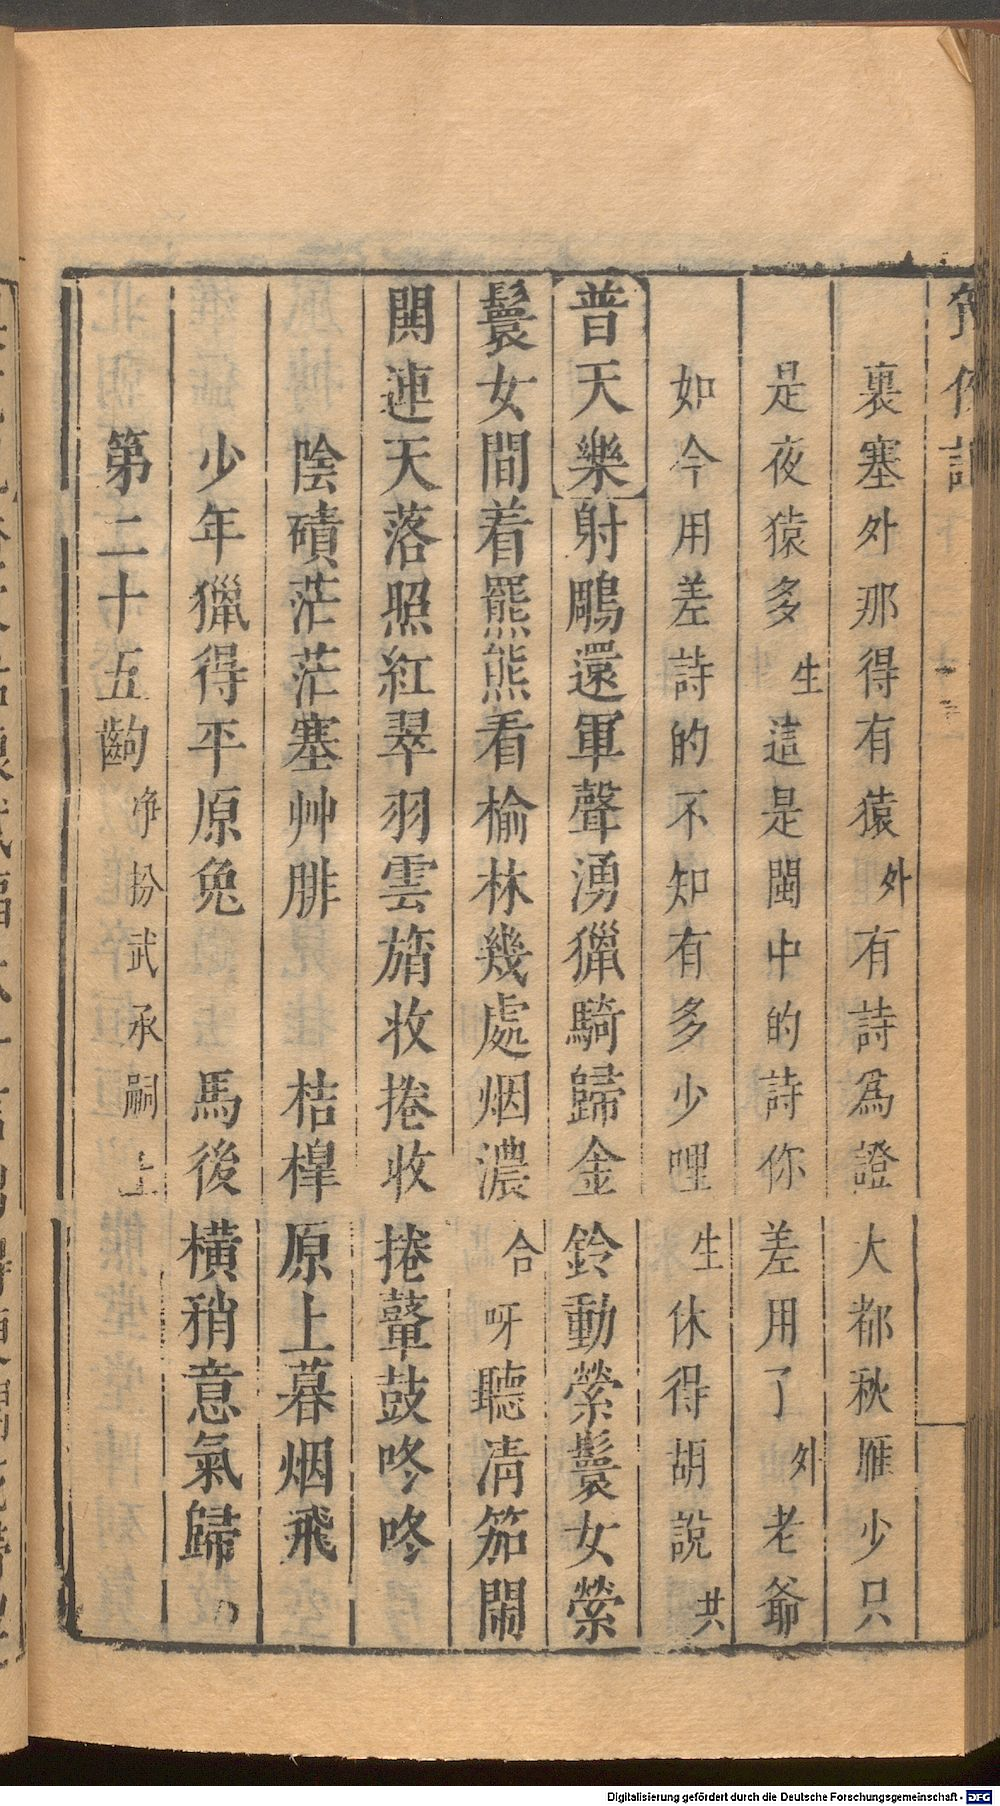 裏塞外那得有猿外有詩為證大都秋雁少只
是夜猿多生這是閩中的詩你差用了外老爺
如今用差詩的不知有多少哩生休得胡說共
普天樂射鵰還軍聲湧獵騎歸金鈴動縈鬟女縈
鬟女間着羆熊看榆林幾處烟濃合呀聽清笳鬧
関連天落照紅翠羽雲旓收捲收捲鼙鼓咚咚
陰磧茫茫塞艸腓　桔槹原上暮烟飛
少年獵得平原兔　馬後橫稍意氣歸
第二十五齣淨扮武承嗣上
Digitalisierung gefördert durch die Deutsche Forschungsgemeinschaft - DFG